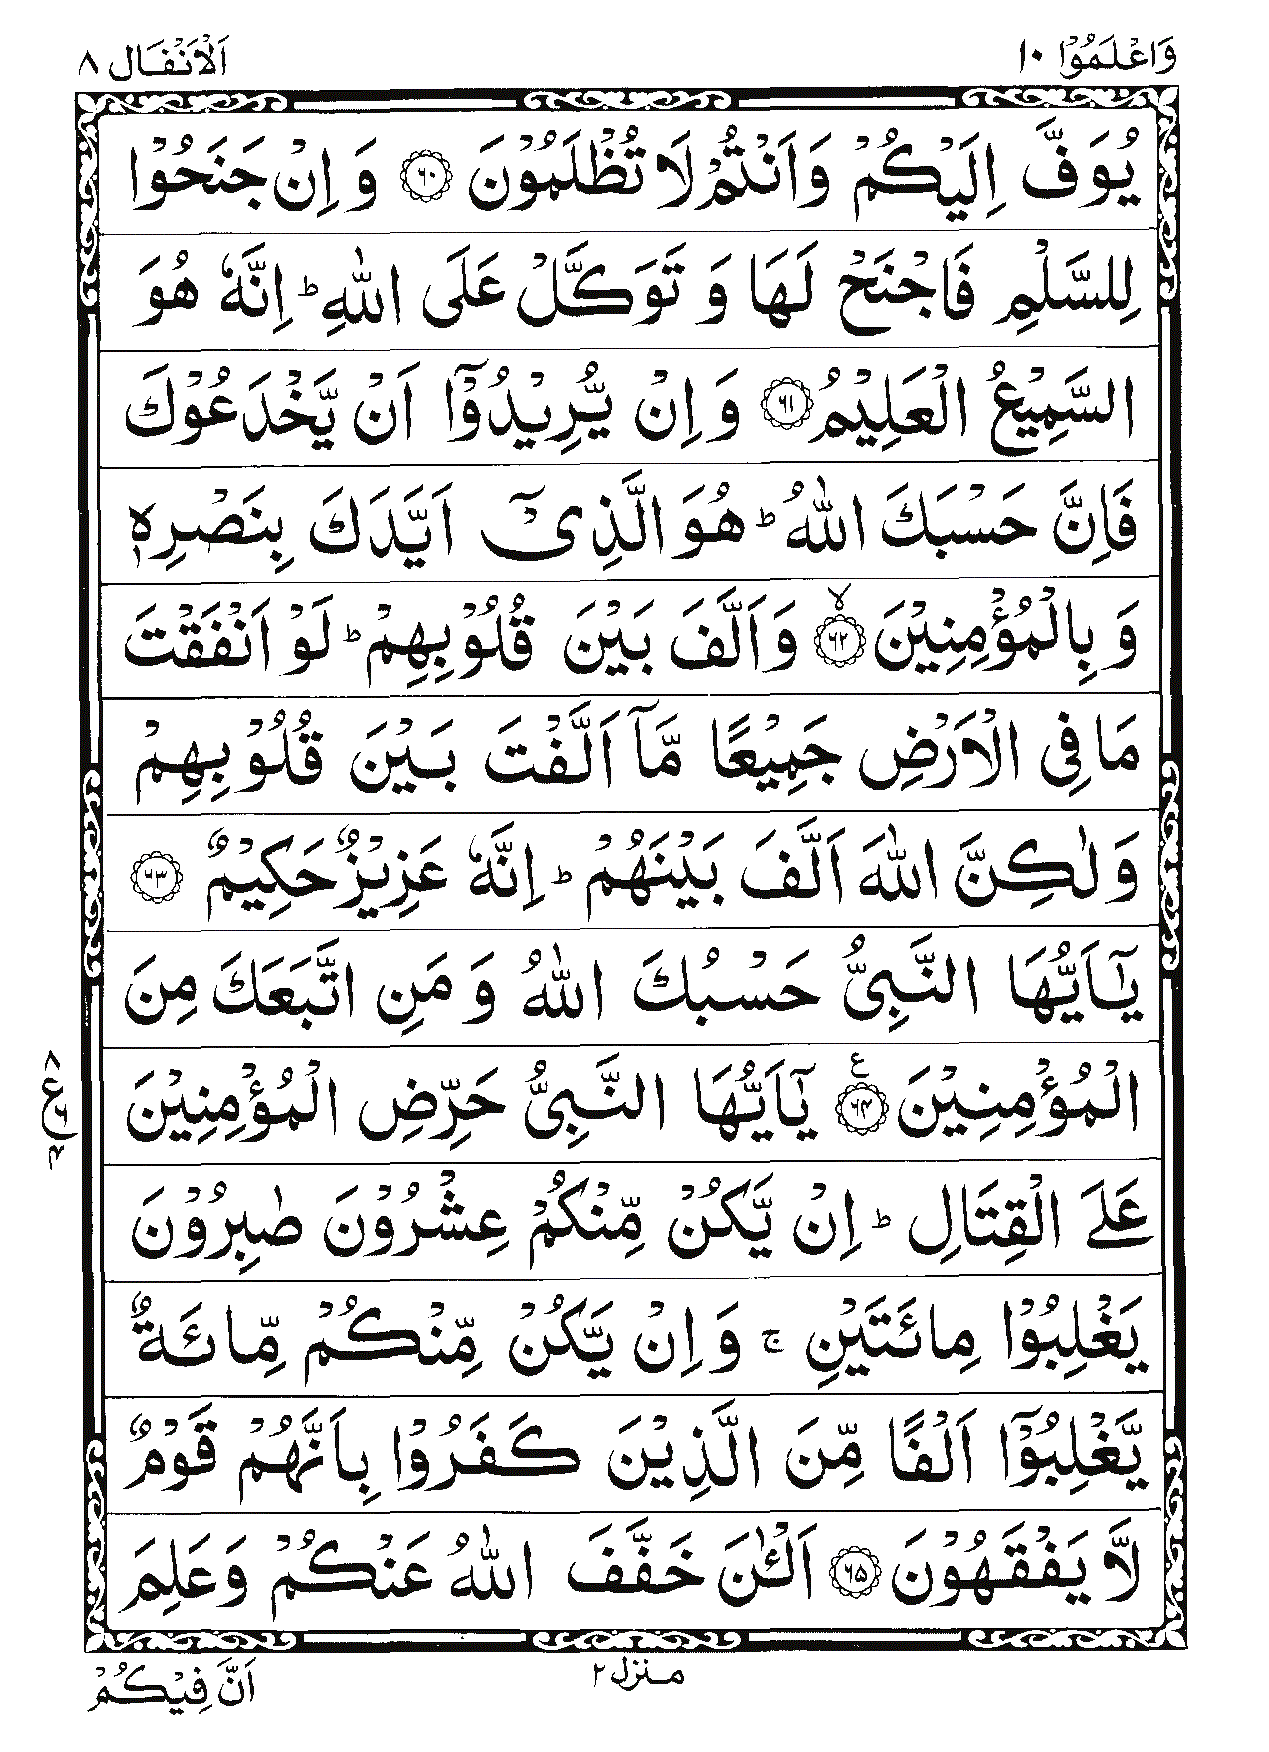 وَاعْلَمُوْا ۱۰
اَلْاَنْفَال ۸
يُوَفَّ اِلَيْكُمْ وَاَنْتُمْ لَا تُظْلَمُوْنَ ﴿۶۰﴾ وَ اِنْ جَنَحُوْا
لِلسَّلْمِ فَاجْنَحْ لَهَا وَ تَوَكَّلْ عَلَى اللّٰهِ ؕ اِنَّهٗ هُوَ
السَّمِيْعُ الْعَلِيْمُ ﴿۶۱﴾ وَ اِنْ يُّرِيْدُوْۤا اَنْ يَّخْدَعُوْكَ
فَاِنَّ حَسْبَكَ اللّٰهُ ؕ هُوَ الَّذِىْۤ اَيَّدَكَ بِنَصْرِهٖ
وَ بِالْمُؤْمِنِيْنَ ﴿۶۲﴾ۙ وَاَلَّفَ بَيْنَ قُلُوْبِهِمْ ؕ لَوْ اَنْفَقْتَ
مَا فِى الْاَرْضِ جَمِيْعًا مَّاۤ اَلَّفْتَ بَيْنَ قُلُوْبِهِمْ
وَلٰكِنَّ اللّٰهَ اَلَّفَ بَيْنَهُمْ ؕ اِنَّهٗ عَزِيْزٌ حَكِيْمٌ ﴿۶۳﴾
يٰۤاَيُّهَا النَّبِىُّ حَسْبُكَ اللّٰهُ وَ مَنِ اتَّبَعَكَ مِنَ
الْمُؤْمِنِيْنَ ﴿۶۴﴾ۧ يٰۤاَيُّهَا النَّبِىُّ حَرِّضِ الْمُؤْمِنِيْنَ
عَلَى الْقِتَالِ ؕ اِنْ يَّكُنْ مِّنْكُمْ عِشْرُوْنَ صٰبِرُوْنَ
يَغْلِبُوْا مِائَتَيْنِ ۚ وَ اِنْ يَّكُنْ مِّنْكُمْ مِّائَةٌ
يَّغْلِبُوْۤا اَلْفًا مِّنَ الَّذِيْنَ كَفَرُوْا بِاَنَّهُمْ قَوْمٌ
لَّا يَفْقَهُوْنَ ﴿۶۵﴾ اَلْـٰٔنَ خَفَّفَ اللّٰهُ عَنْكُمْ وَعَلِمَ
۸
ع
۶
۴
منزل ۲
اَنَّ فِيْكُمْ